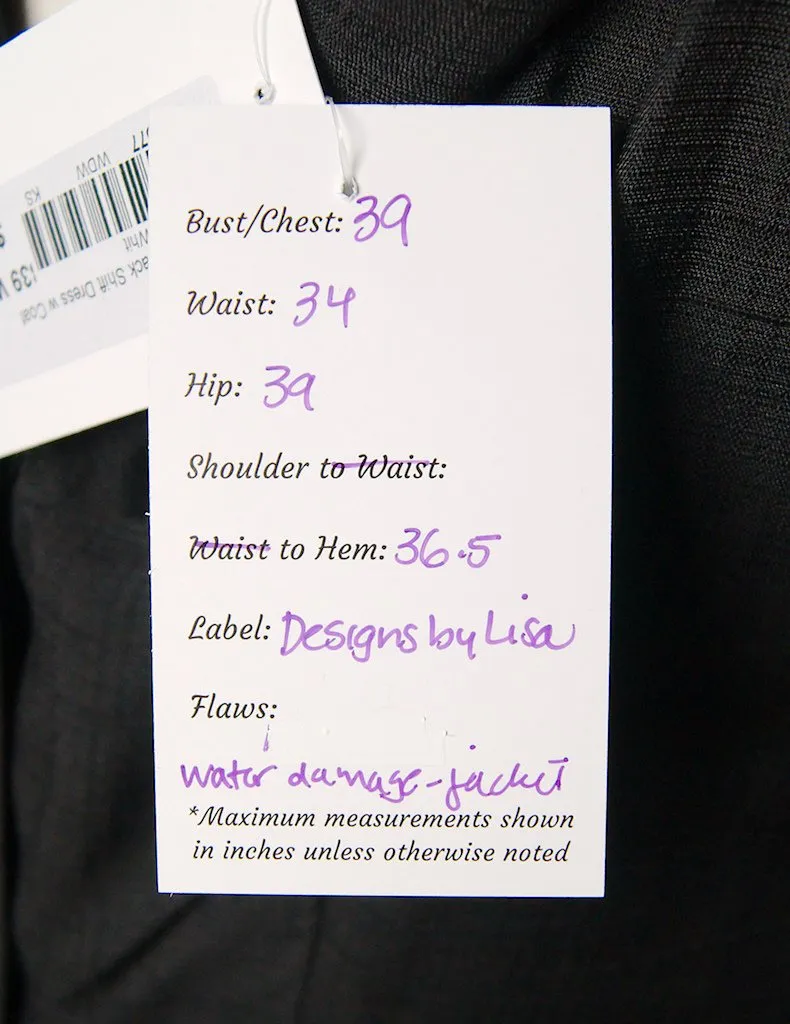 Bust/Chest: 39
Waist: 34
Hip: 39
Shoulder to Waist:
Waist to Hem: 36.5
Label: Designs by Lisa
Flaws:
water damage-jacket
*Maximum measurements shown
in inches unless otherwise noted
WDW
KS
ack Shift Dress w Coat
Whit